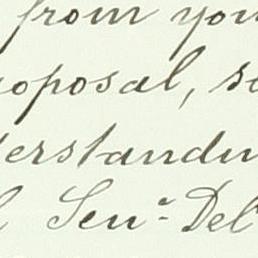 from you
roposal, so
erstandin
l Senr. Del